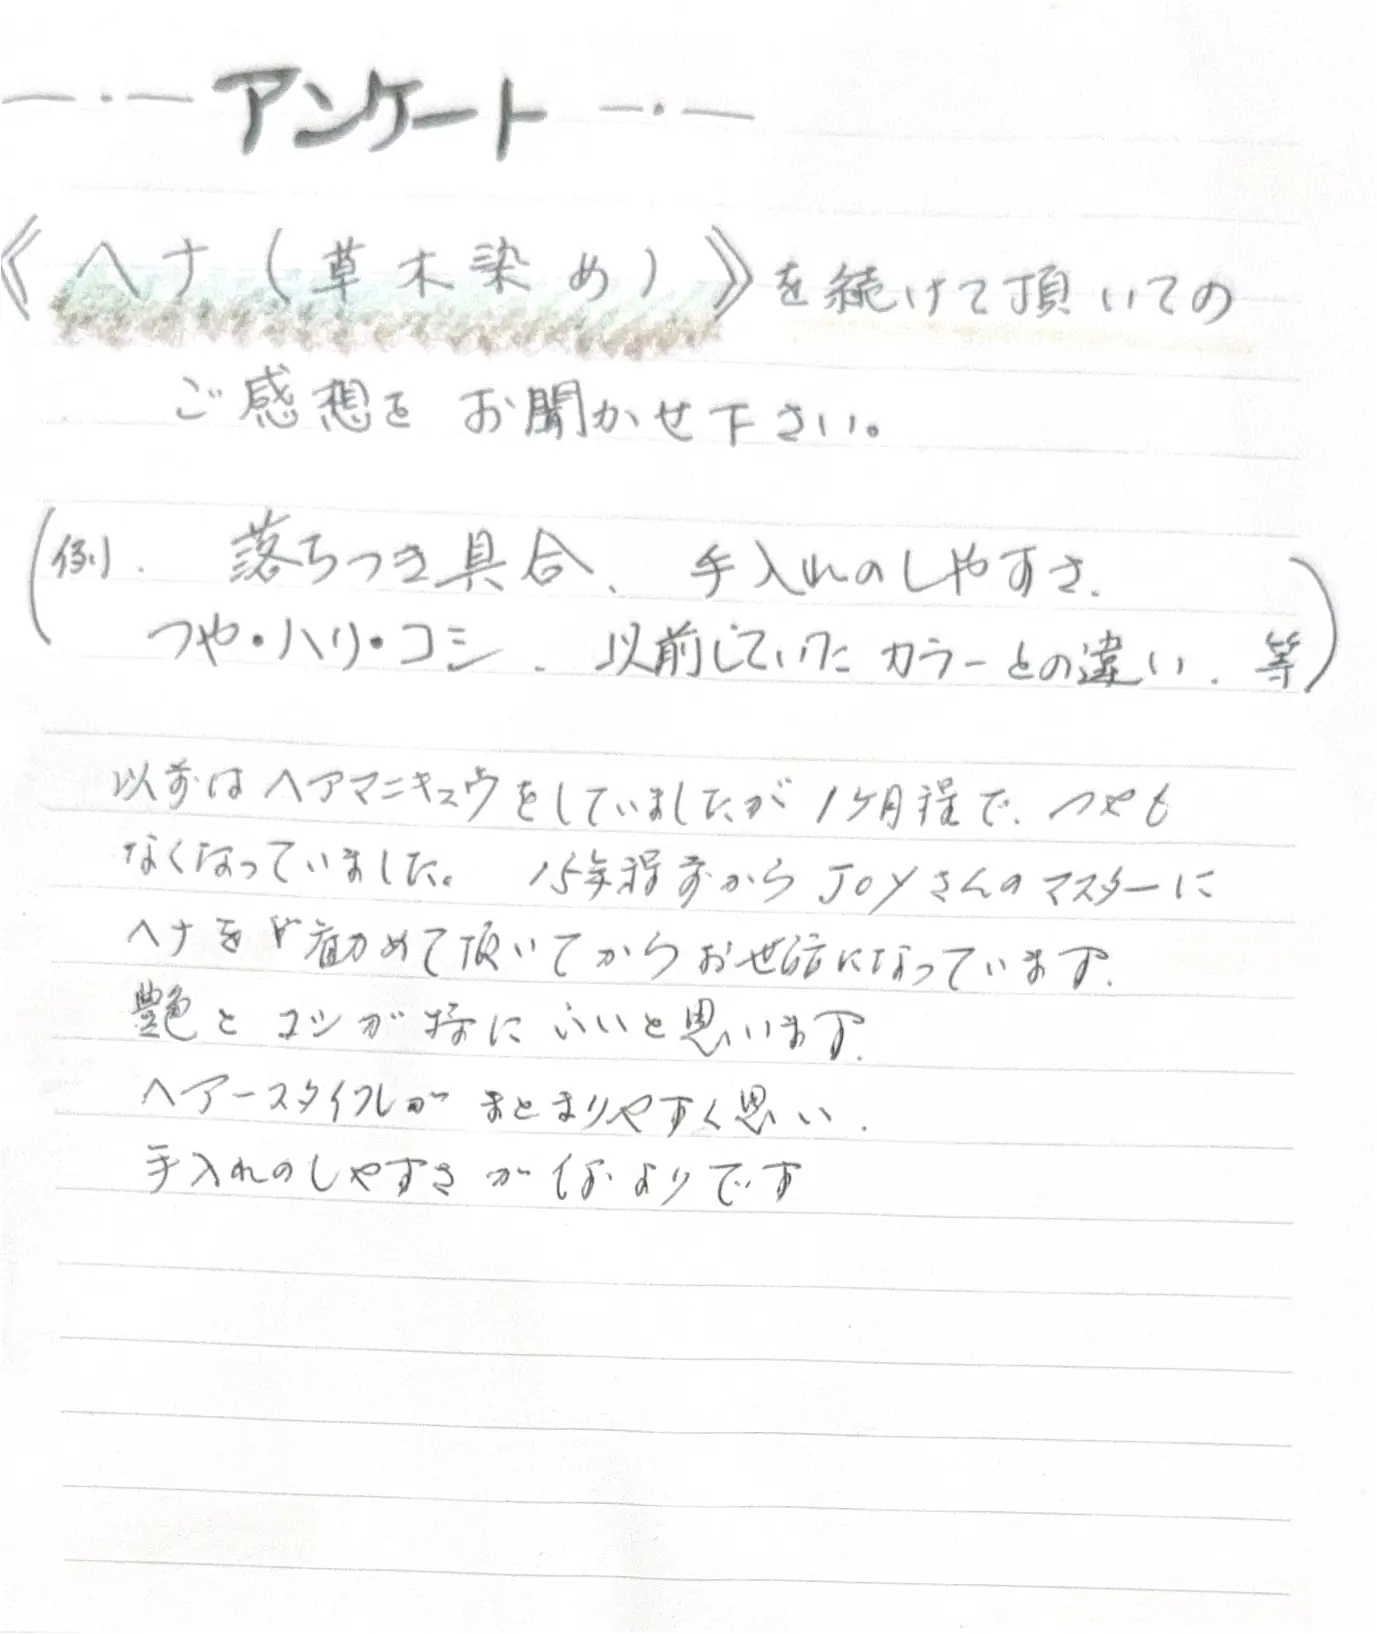 アンケート
《ヘナ（草木染め）》を続けて頂いての
ご感想を お聞かせ下さい。
（例. 落ちつき具合、手入れのしやすさ、
つや・ハリ・コシ、以前していたカラーとの違い、等）
以前はヘアマニキュウをしていましたが1ヶ月程で、つやも
なくなっていました。 15年程前からJOYさんのマスターに
ヘナをお勧めて頂いてからお世話になっています。
艶とコシが特にいいと思います。
ヘアースタイルがまとまりやすく思い、
手入れのしやすさがなによりです